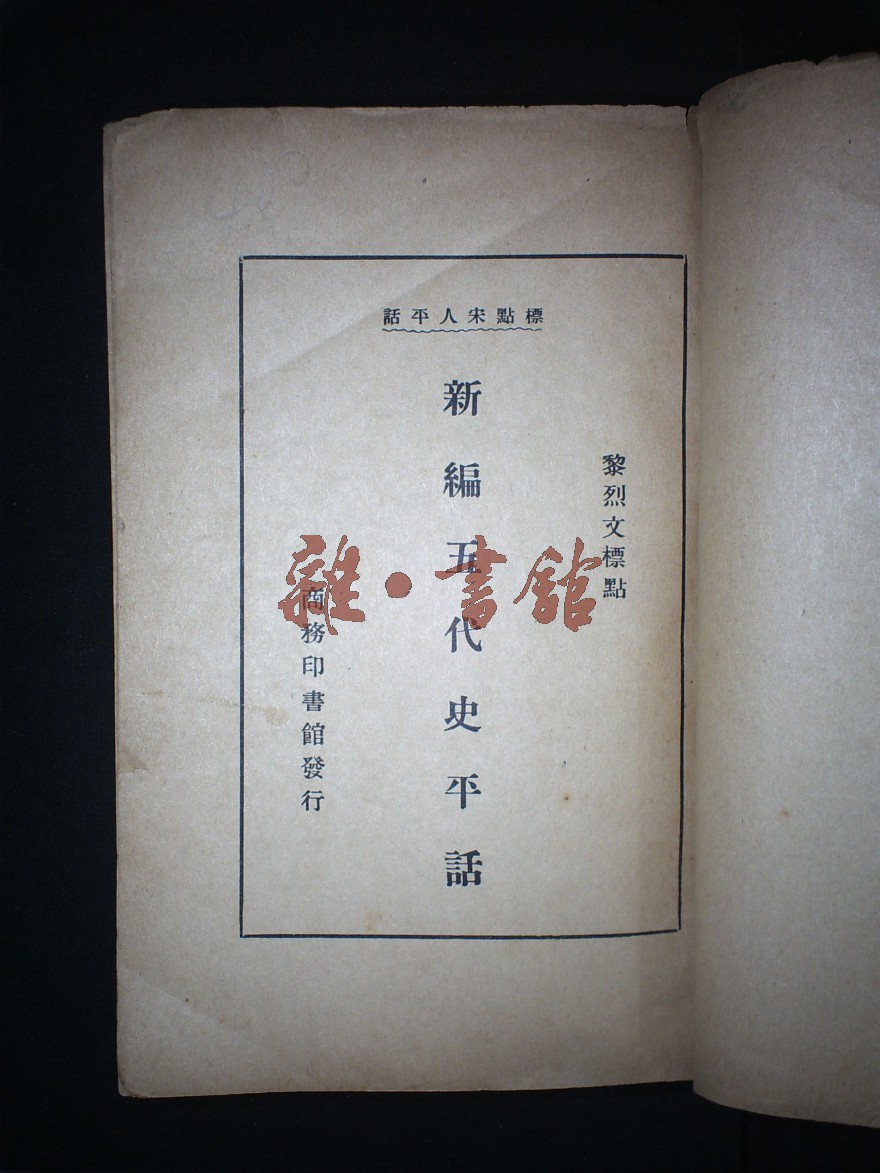 標點宋人平話
黎烈文標點
新編五代史平話
商務印書館發行
雜·書館